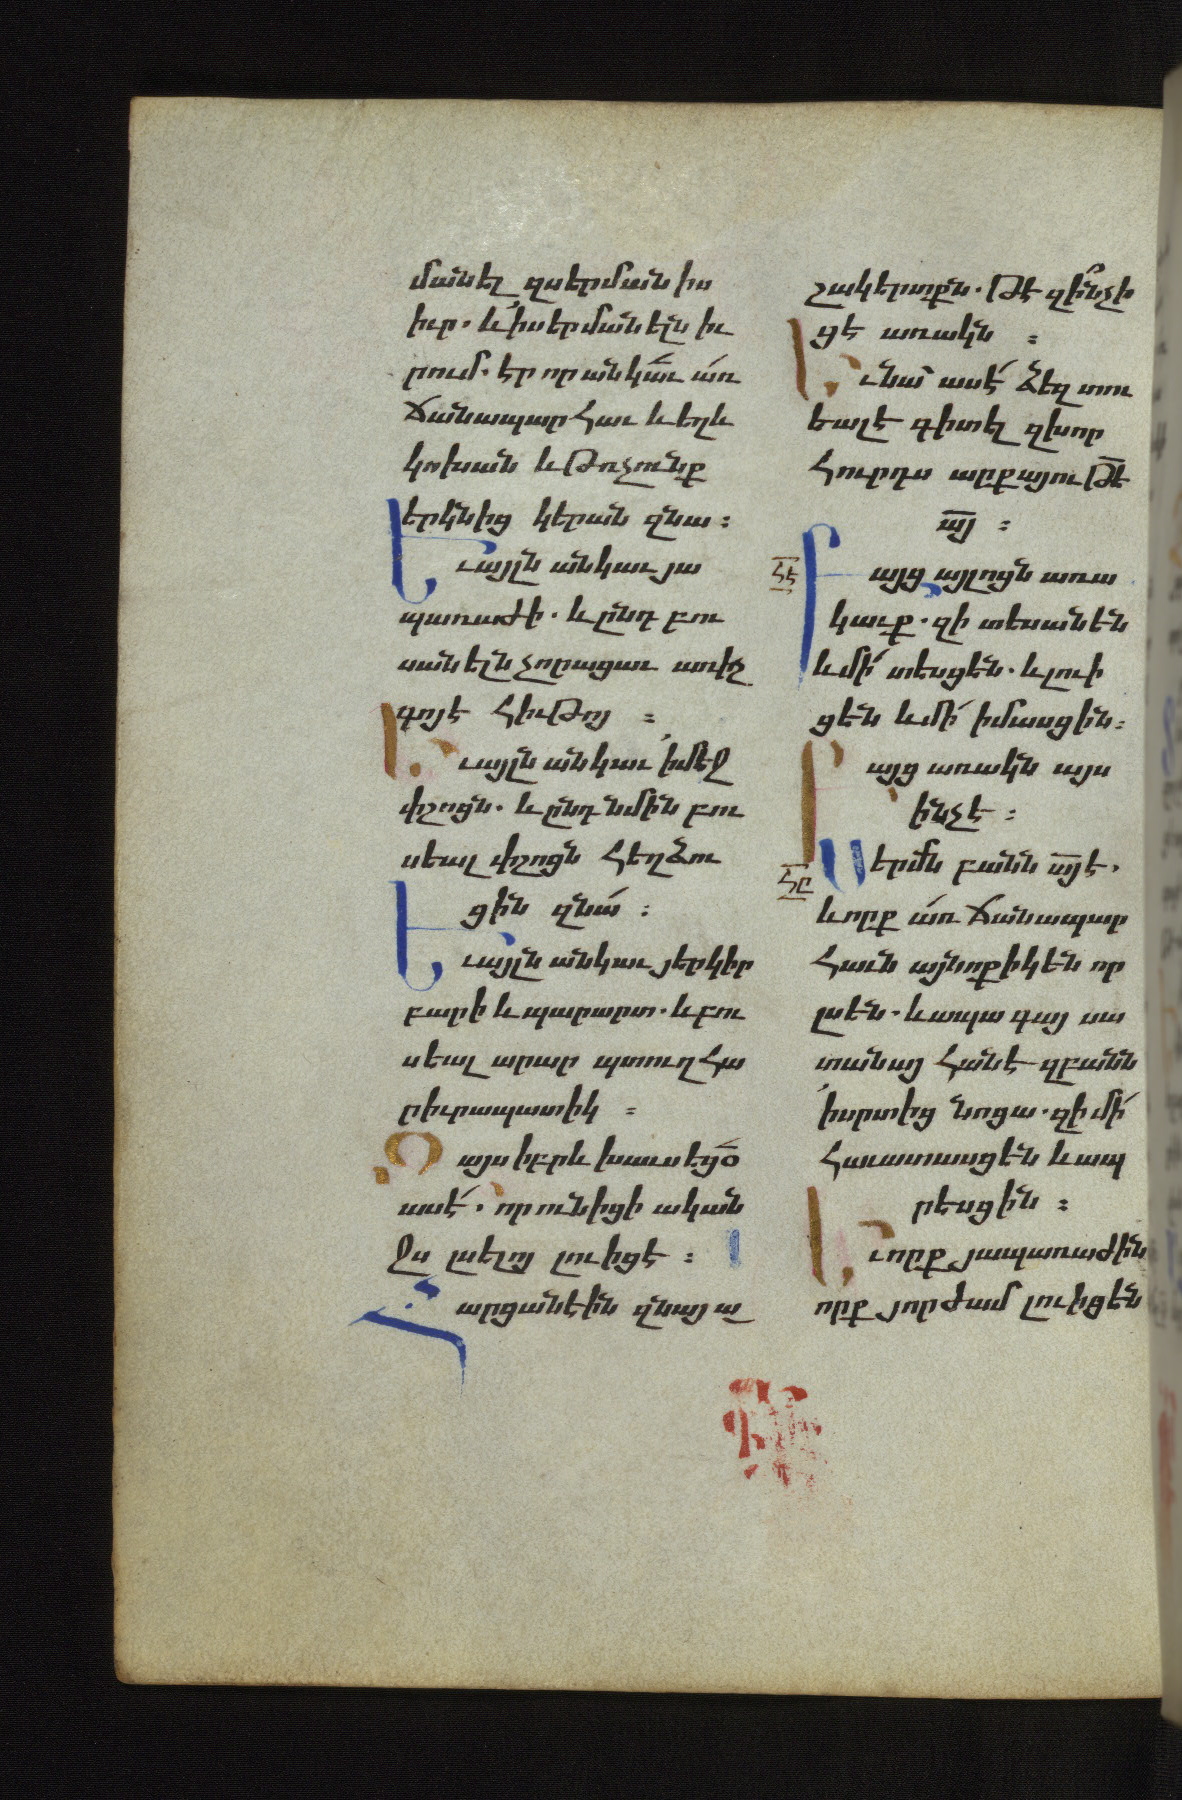 մանել զսերմանիս
իւր. և ՚ի սերմանելն իւ
րում. էր որ անկաւ առ
ճանապարհաւ և եղև
կոխան և թռչունք
երկնից կերան զնա :
Եւ այլն անկաւ յա
պառաժի. և ընդ բու
սանելն չորացաւ առ ՚ի չ
գոյէ հիւթոյ :
Եւ այլն անկաւ ՚ի մէջ
փշոցն. և ընդ նմին բու
սեալ փշոցն հեղձու
ցին զնա :
Եւ այլն անկաւ յերկիր
բարի և պարարտ. և բու
սեալ արար պտուղ հա
րիւրապատիկ :
Զայս իբրև խաւսեցօ
ասէ. որ ունիցի ական
ջս լսելոյ լուիցէ :
Հարցանէին զնա աշ
շակերտքն. թէ զինչ ի
ցէ առակն :
Եւ նա ասէ ձեզ տու
եալ է գիտել զխոր
հուրդս արքայութե
այ :
ՀԷ Բայց այլոցն առա
կաւք. զի տեսանեն
և մի տեսցեն. և լուի
ցեն և մի իմասցին :
Բայց առակն այս
ինչ է :
ՀԸ Սերմն բանն այ է.
և որք առ ճանապար
հաւն այնոքիկ են որ
լսեն. և ապա գայ սա
տանայ հանէ զբանն
՚ի սրտից նոցա. զի մի
հաւատասցեն և ապ
րեսցին :
Եւ որք յապառաժին
որք յորժամ լուիցեն